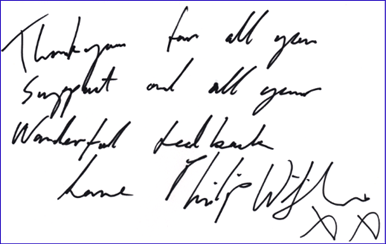 Thankyou for all your
Support and all your
Wonderful feedback
Love Philip
x x